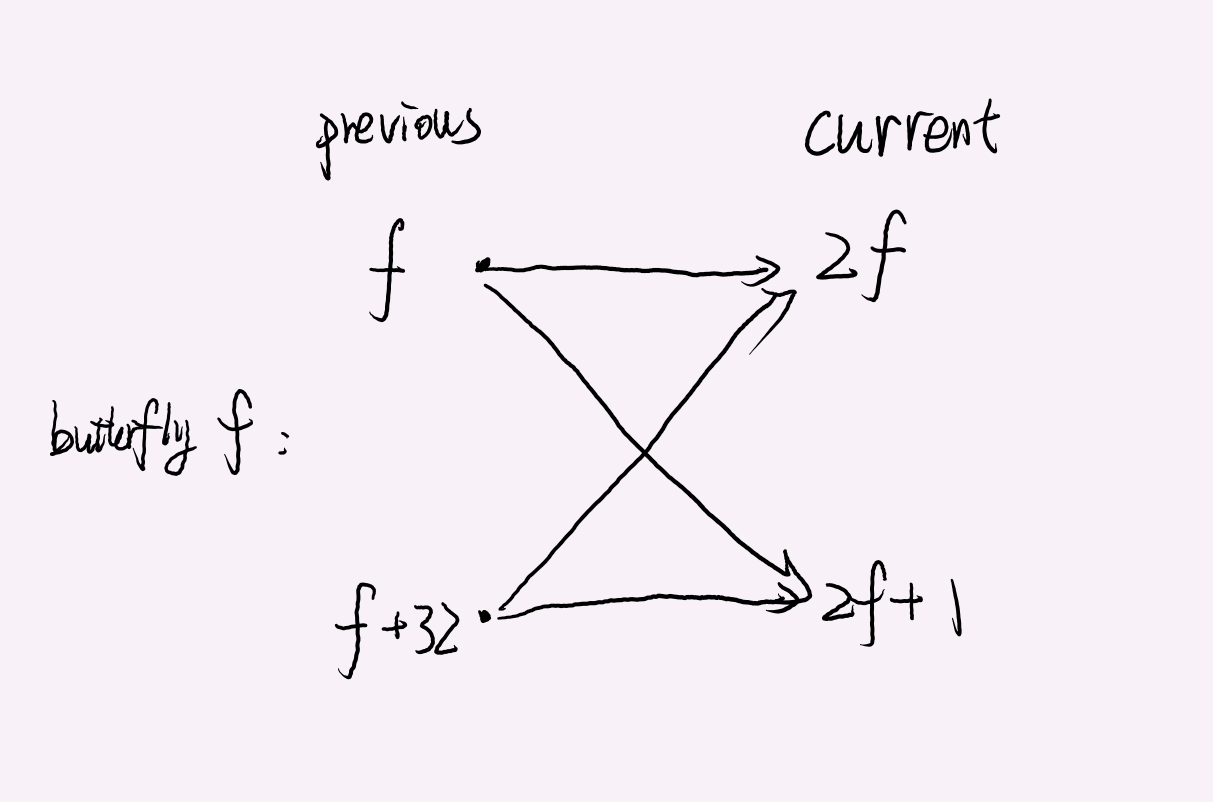 previous current
f 2f
butterfly f :
f+32 2f+1